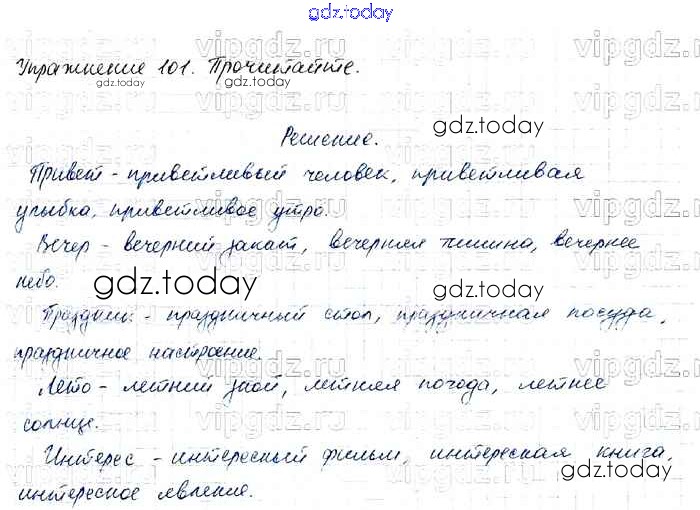 gdz.today
Упражнение 101. Прочитайте.
gdz.today
gdz.today
Решение.
gdz.today
Привет - приветливый человек, приветливая
улыбка, приветливое утро.
Вечер - вечерний закат, вечерняя тишина, вечернее
небо.
gdz.today
gdz.today
Праздник - праздничный стол, праздничная посуда,
праздничное настроение.
Лето - летний зной, летняя погода, летнее
солнце.
gdz.today
Интерес - интересный фильм, интересная книга,
gdz.today
интересное явление.
gdz.today